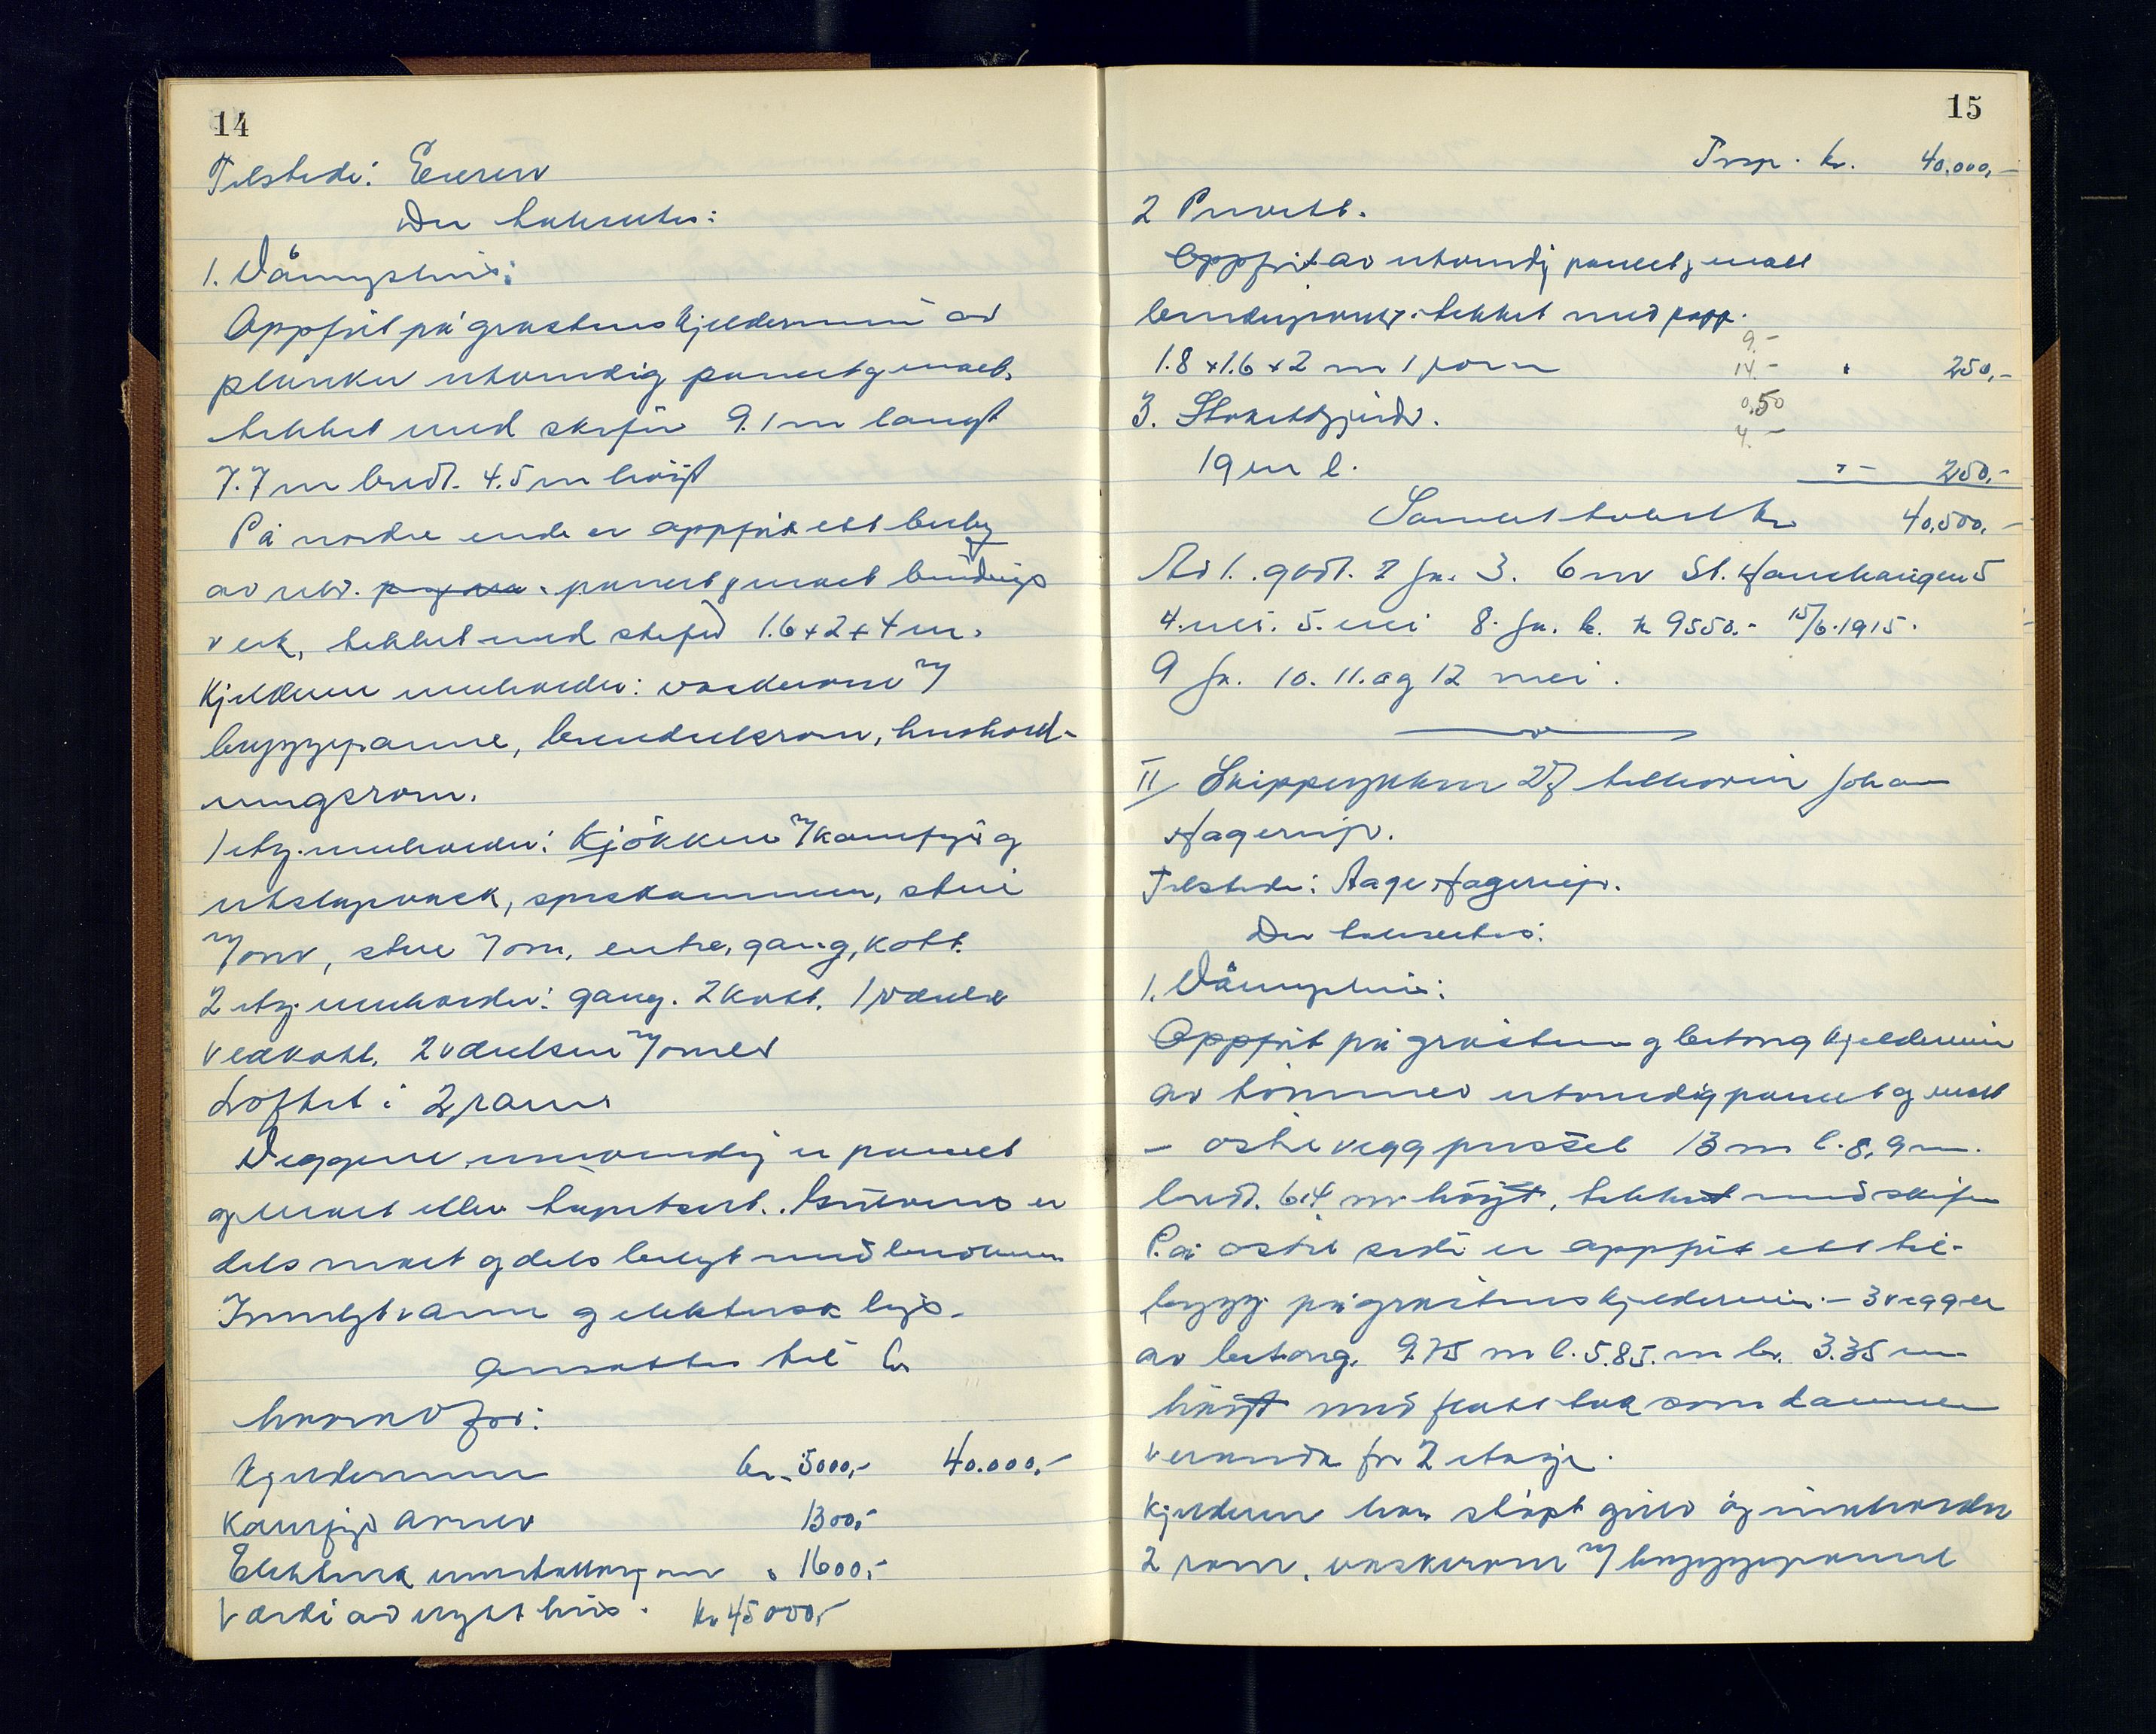 14
Tilstede: Eieren
Der taksertes:
1. Våningshus:
Oppført på gråstens kjeldermur av
planker utvendig panelt g malt,
tekket med skifer 9.1 m langt
7.7 m bredt. 4.5 m höigt
På nordre ende er oppført ett bisl
av utv. panelt g malt bindings
verk, tekket med skifer 1.6 x 2 x 4 m.
Kjelderen inneholder: vaskerum m/
bryggepanne, brendselsrom, hushold-
ningsrom.
1 etg. inneholder: Kjökken m/ komfyr g
utslagsvask, spiskammer, stue
m/ ovn, stue m/ ovn, entre, gang, kott.
2 etg. inneholder: gang. 2 kott. 1 værelse
vedkott, 2 værelser m/ ovner
Loftet i 2 rom
Veggene innvendig er panelt
g malt eller tapetsert. Gulvene er
dels malt g dels belagt med linoleum
Innlagt vann g elektrisk lys.
Ansattes til kr
hvorav for:
Kjeldermur kr. 5000,- 40.000,-
Komfyr ovner 1300,-
Elektrisk installasjon " 1600,-
Værdi av nytt hus. kr 45000,-
15
Trsp. kr. 40.000,-
2 Privett.
Oppført av utvendig panelt g malt
bindingsverk, tekket med papp.
9.-
1.8 x 1.6 x 2 m 1 rom 14.- " 250,-
3. Stakittgjerde. 0,50
4.-
19 m l. "- 250,-
Samlet takst kr 40,500.-
Ad 1. godt. 2 ja. 3. 6 m St. Hanshaugen 5
4. nei. 5. nei 8. ja. kr. 9550.- 15/6.1915.
9 ja. 10. 11. og 12 nei.
II/ Skippergaten 27 tilhörer Johan
Hagerup.
Tilstede: Aage Hagerup.
Der taksertes:
1. Våningshus:
Oppført på gråsten g betong kjeldermur
av tömmer utvendig panelt g malt
- östre vegg pusset 13 m l. 8,9 m.
bredt. 6.4 m höigt, tekket med skifer
På östre side er oppført ett til-
bygg på gråstens kjeldermur. - 3 vegger
av betong. 9.75 m l. 5.85. m br. 3.35 m
höigt med flatt tak som danner
veranda for 2 etasje.
Kjelderen har stöpt gulv og inneholder
2 rom, vaskerom m/ bryggepanne